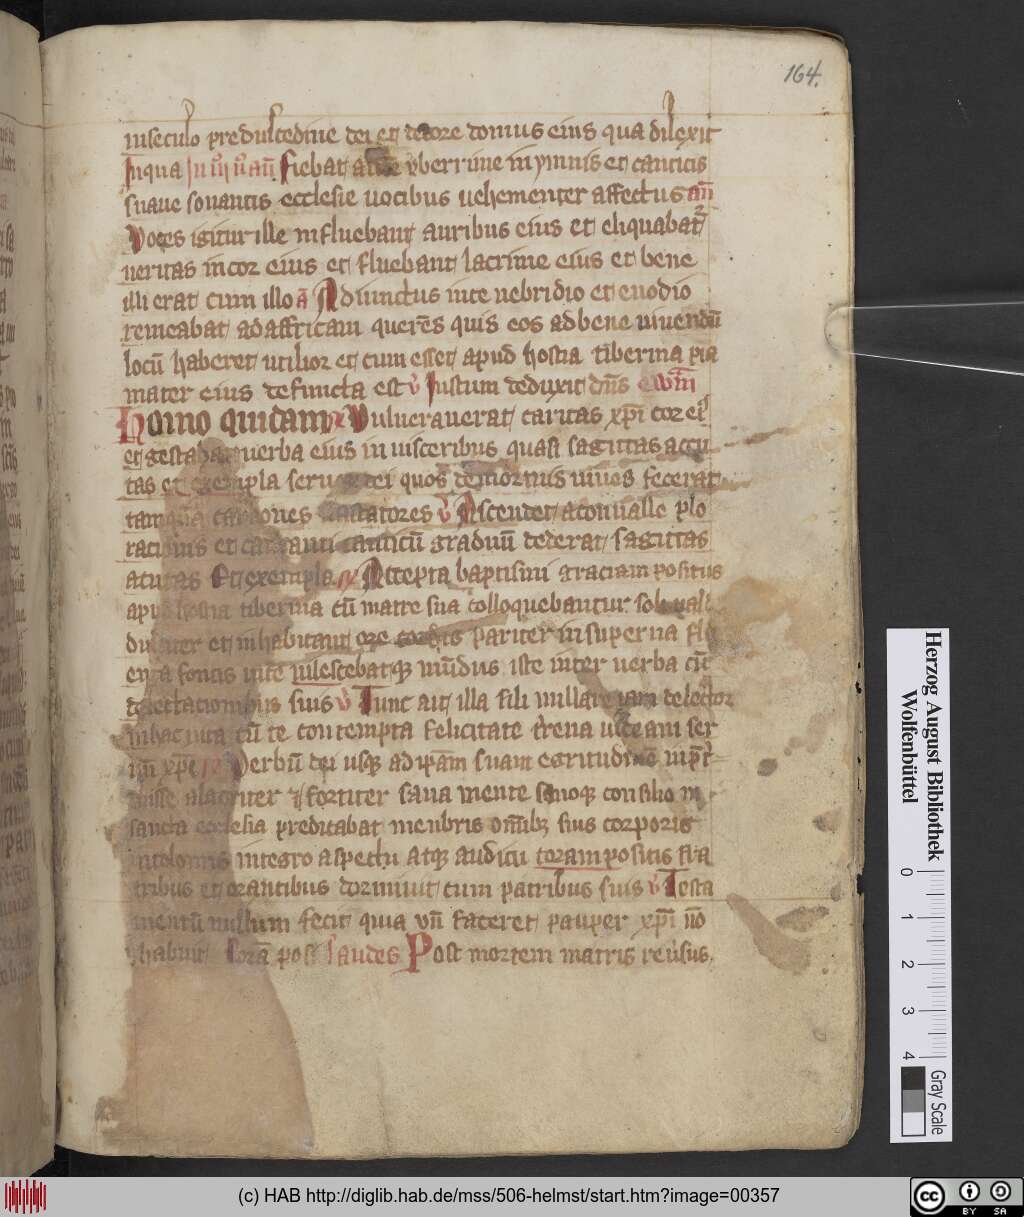 164.
inseculo predulcedine dei et decore domus eius qua dilexit
Inqua fiebat uberrime in ymnis et canticis
suaue sonantis ecclesie uocibus uehementer affectus an̄
Voces igitur ille influebant auribus eius et eliquabat᷑
ueritas incor eius et fluebant lacrime eius et bene
illi erat cum illo ā Adiunctus inte nebridio et euodio
remeabat ad affricam querēs quis eos adbene uiuendū
locū haberet utilior et cum esset apud hostia tiberina pia
mater eius defuncta est Iustum deduxit dn̄s
Homo quidam Vulnerauerat caritas xp̄i cor ei᷒
et gestabat uerba eius in uisceribus quasi sagittas accu
tas et exempla seruorum dei quos de mortuis uiuos fecerat
tamquā carbones uastatores Ascendet aconualle plo
racionis et cantanti canticū graduū dederat sagittas
acutas Et exempla Accepta baptismi graciam positus
apud hostia tiberina cū matre sua colloquebantur soli ualde
dulciter et inhabitant ore cordis pariter in superna flu
enta fontis uite uilescebatqȝ mūdus iste inter uerba cū
delectacionibus suis Tunc ait illa fili nulla re iam delector
inhac uita cū te contempta felicitate terrena uideam ser
uū xp̄i Verbū dei usqȝ ad ip̄am suam egritudinē inpret
misse alacriter et fortiter sana mente sanoqȝ consilio in
sancta ecclesia predicabat menbris om̄ibȝ suis corporis
incolomis integro aspectu atqȝ auditu coram positis fra
tribus et orantibus dormiuit cum patribus suis Testa
mentū nullum fecit quia un̄ faceret pauper xp̄i nō
habuit Laudes Post mortem matris reuersus.
Herzog August Bibliothek
Wolfenbüttel
0 1 2 3 4
Gray Scale
(c) HAB http://diglib.hab.de/mss/506-helmst/start.htm?image=00357
cc BY SA